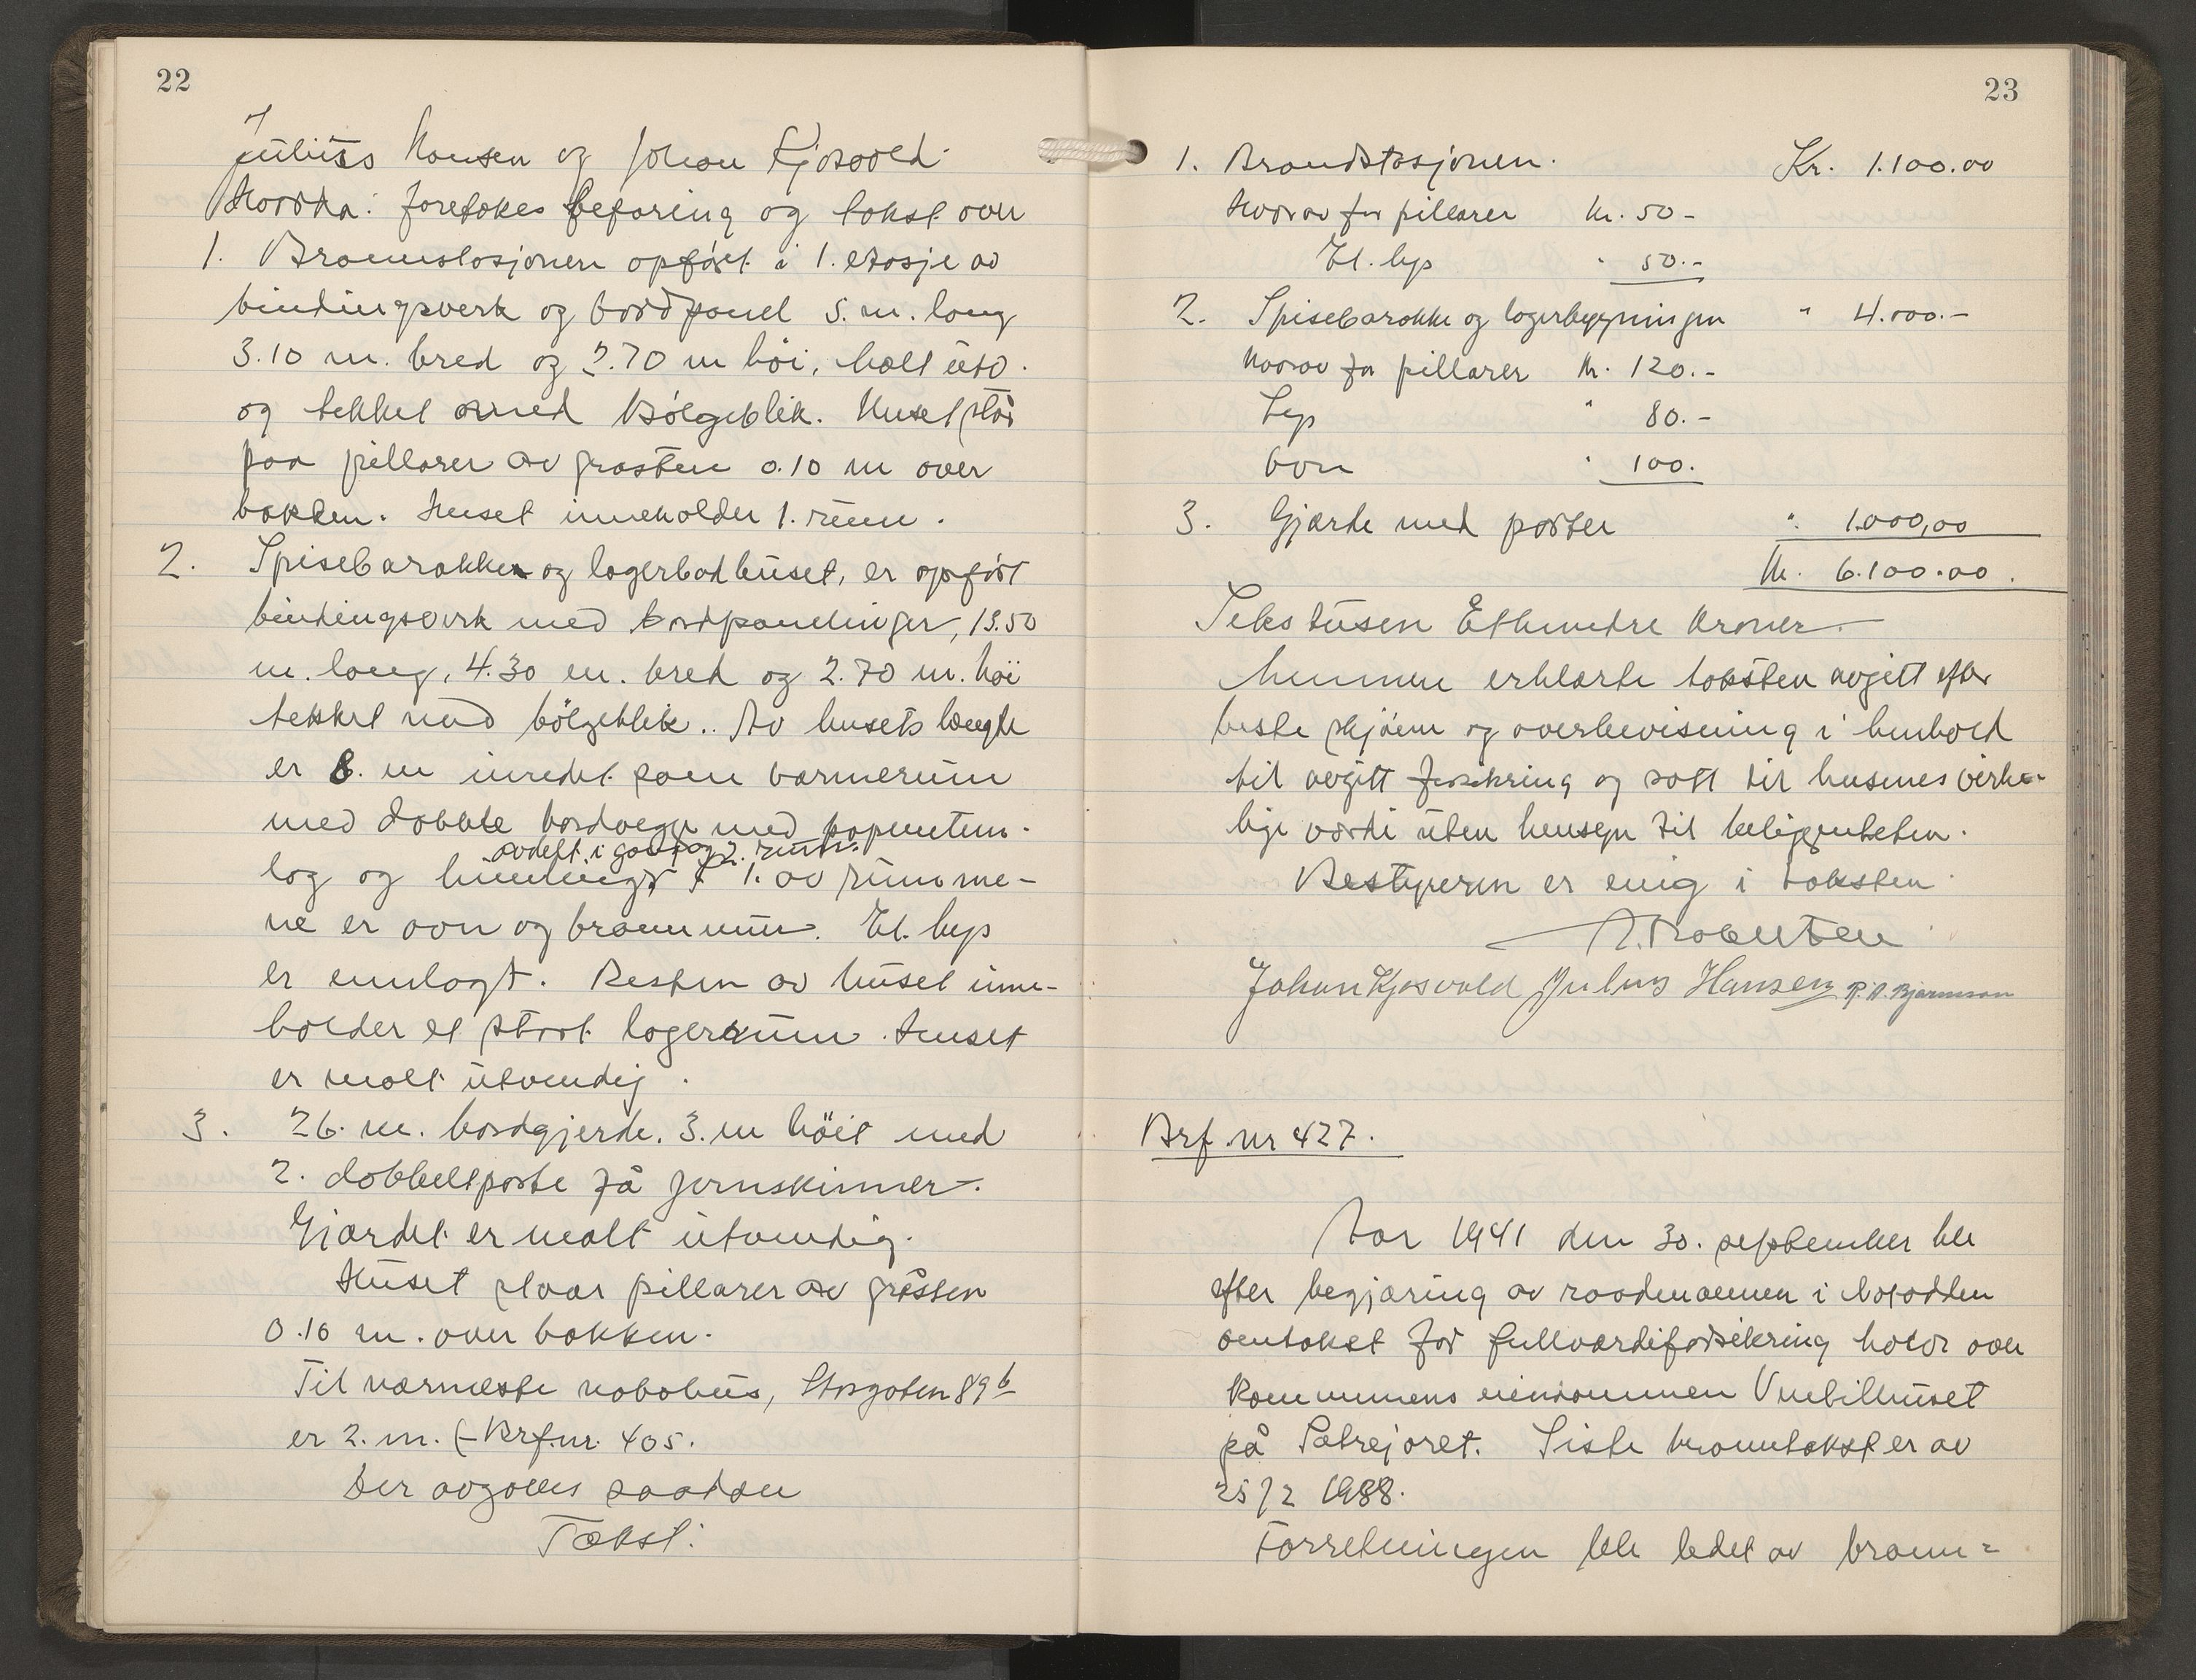 22
Julius Hansen og Johan Kjosvold
Hvorda: foretokes befaring og takst over
1. Brannstasjonen opført i 1. etasje av
bindingsverk og bordpanel 5. m. lang
3.10 m. bred og 2.70 m høi, malt utv.
og tekket med Bølgeblik. Huset står
paa pillarer av graasten 0.10 m over
bakken. Huset inneholder 1. rum.
2. Spisebarakken og lagerbadhuset, er opført
bindingsverk med bordpanelinger, 13.50
m. lang, 4.30 m. bred og 2.70 m. høi
tekket med bölgeblik.. Av husets længde
er 8. m inredet som varmerum
med dobbele bordvegger med papmellem-
avdelt i gang og 2. rum.
log og 1. av rumme-
ne er ovn og brannmur. El. lys
er innlagt. Resten av huset inne-
holder et stort lagerrum. Huset
er malt utvendig.
3. 26. m. bordgjerde. 3. m höit med
2. dobbeltporte på jernskinner.
Gjærdet er malt utvendig.
Huset staar pillarer av gråsten
0.10 m. over bakken.
Til nærmeste nabohus, Storgaten 89 b
er 2. m. (- Brf. nr. 405.
Der avgaves saadan
Takst:
23
1. Brandstasjonen. Kr. 1.100.00
Hvorav for pillarer kr. 50-
El. lys " 50.-
2. Spisebarakke og lagerbygningen " 4.000.-
hvorav for pillarer kr. 120.-
Lys " 80.-
Ovn " 100.
3. Gjærde med porter " 1.000,00
Kr. 6.100.00.
Sekstusen Ethundre Kroner.
Mennene erklærte taksten avgitt efter
beste skjönn og overbevisning i henhold
til avgitt forsikring og satt til husenes virke-
lige værdi uten hensyn til beliggenheten.
Bestyreren er enig i taksten.
Johan Kjosvold Julius Hansen R. A. Bjørnson
Brf. nr 427.
Aar 1941 den 30. september ble
efter begjæring av raadmannen i Notodden
omtakst for fullværdiforsikring holdt over
Kommunens eiendommen
på Sætrejoret. Siste branntakst er av
25/2 1938.
Forretningen ble ledet av brann=